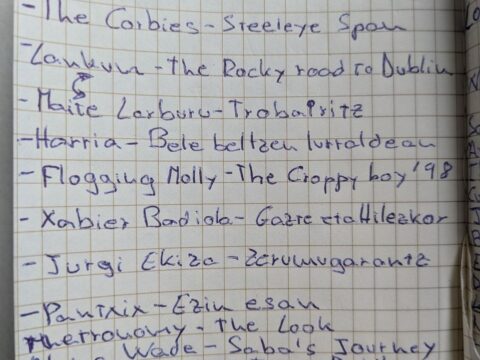 -The Corbies-Steeleye Span
-Lankum-The Rocky road to Dublin
-Maite Larburu-Trobairitz
-Harria-Bele beltzen lurraldean
-Flogging Molly-The Croppy boy '98
-Xabier Badiola-Gazte eta Hilezkor
-Jurgi Ekiza-Zerumugarantz
-Pantxix-Ezin esan
Metronomy-The Look
Wade-Saba's Journey